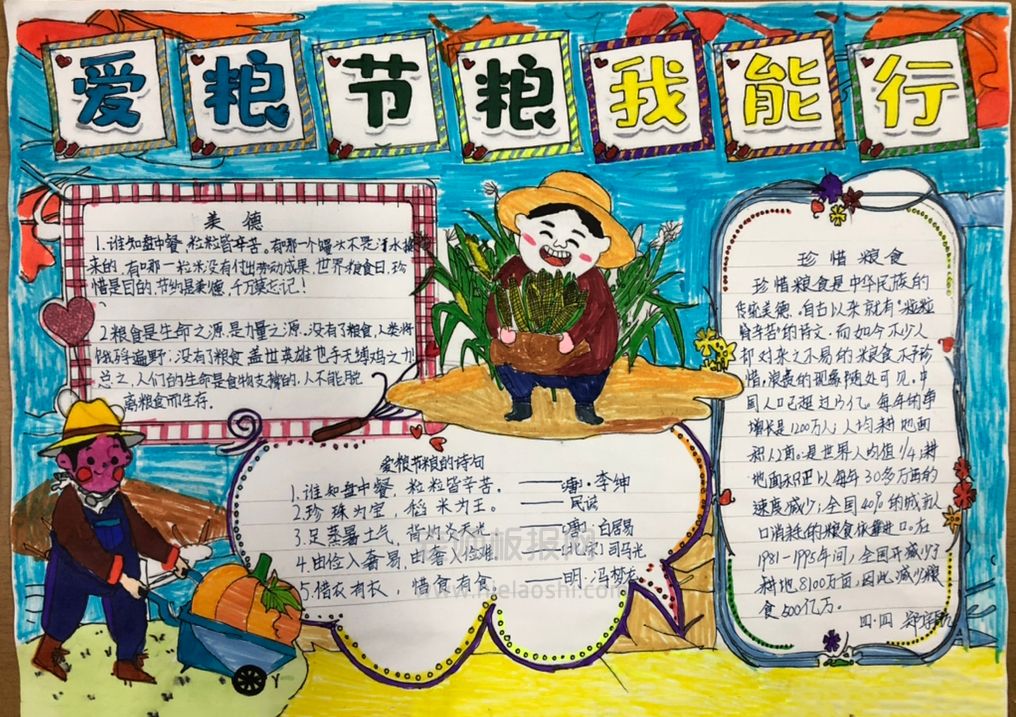 爱粮节粮我能行
美 德
1.谁知盘中餐,粒粒皆辛苦。有哪一个馒头不是汗水换
来的,有哪一粒米没有付出劳动成果,世界粮食日,珍
惜是目的,节约是美德,千万莫忘记!
2.粮食是生命之源,是力量之源.没有了粮食,人类将
饿殍遍野;没有了粮食,盖世英雄也手无缚鸡之力!
总之,人们的生命是食物支撑的,人不能脱
离粮食而生存.
爱粮节粮的诗句
1.谁知盘中餐,粒粒皆辛苦。——唐·李绅
2.珍珠为宝,稻米为王。——民谚
3.足蒸暑土气,背灼炎天光——唐·白居易
4.由俭入奢易,由奢入俭难——北宋:司马光
5.惜衣有衣,惜食有食——明·冯梦龙
www.hielaoshi.com
珍惜粮食
珍惜粮食是中华民族的
传统美德,自古以来就有"粒粒
皆辛苦"的诗文.而如今不少人
却对来之不易的粮食不予珍
惜,浪费的现象随处可见,中
国人口已超过13亿,每年的净
增长是1200万人;人均耕地面
积1.2亩.是世界人均值1/4;耕
地面积正以每年30多万亩的
速度减少;全国40%的城市人
口消耗的粮食依靠进口.在
1981-1995年间,全国共减少了
耕地8100万亩,因此减少粮
食500亿万.
四·四